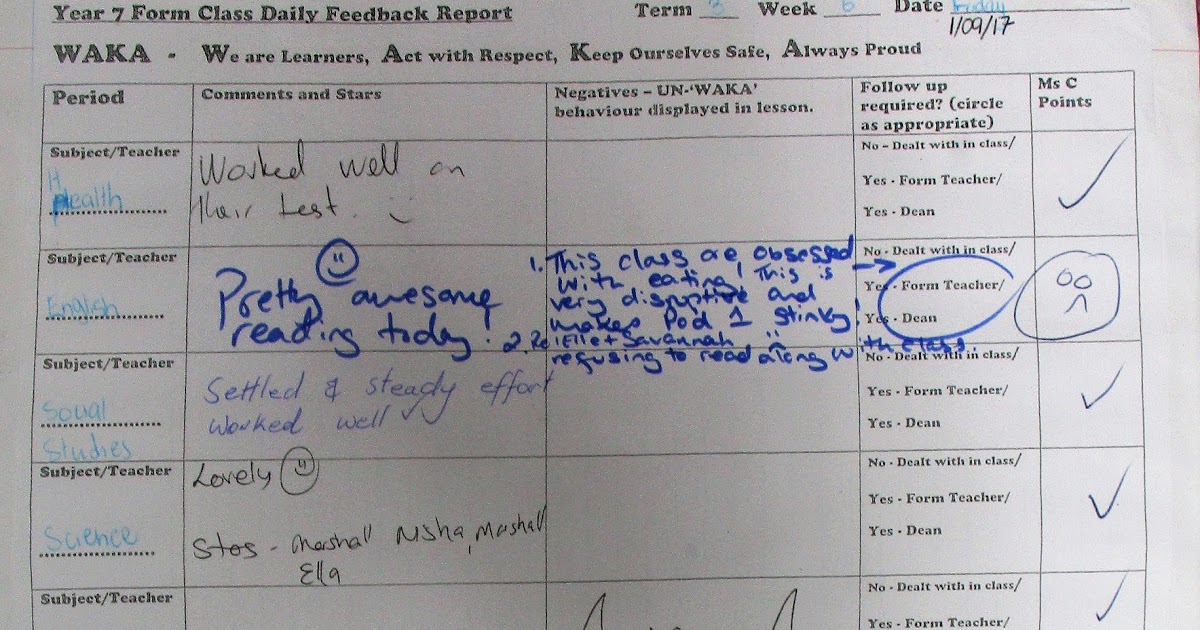 Year 7 Form Class Daily Feedback Report Term 3 Week 6 Date Friday
1/09/17
WAKA - We are Learners, Act with Respect, Keep Ourselves Safe, Always Proud
Period
Comments and Stars
Negatives – UN-'WAKA'
behaviour displayed in lesson.
Follow up
required? (circle
as appropriate)
Ms C
Points
Subject/Teacher
Health
Worked well on
their test.
No – Dealt with in class/
Yes - Form Teacher/
Yes - Dean
Subject/Teacher
English
Pretty awesome
reading today!
1. This class are obsessed
with eating! This is
very disruptive and
makes Pod 1 stinky!
2. + Savannah
refusing to read along with class.
No - Dealt with in class/
Yes - Form Teacher/
Yes - Dean
Subject/Teacher
Social
Studies
Settled & steady effort
Worked well
No - Dealt with in class/
Yes - Form Teacher/
Yes - Dean
Subject/Teacher
Science
Lovely
Stos - Marshall Nisha, Marshall
Ella
No - Dealt with in class/
Yes - Form Teacher/
Yes - Dean
Subject/Teacher
No - Dealt with in class/
Yes - Form Teacher/